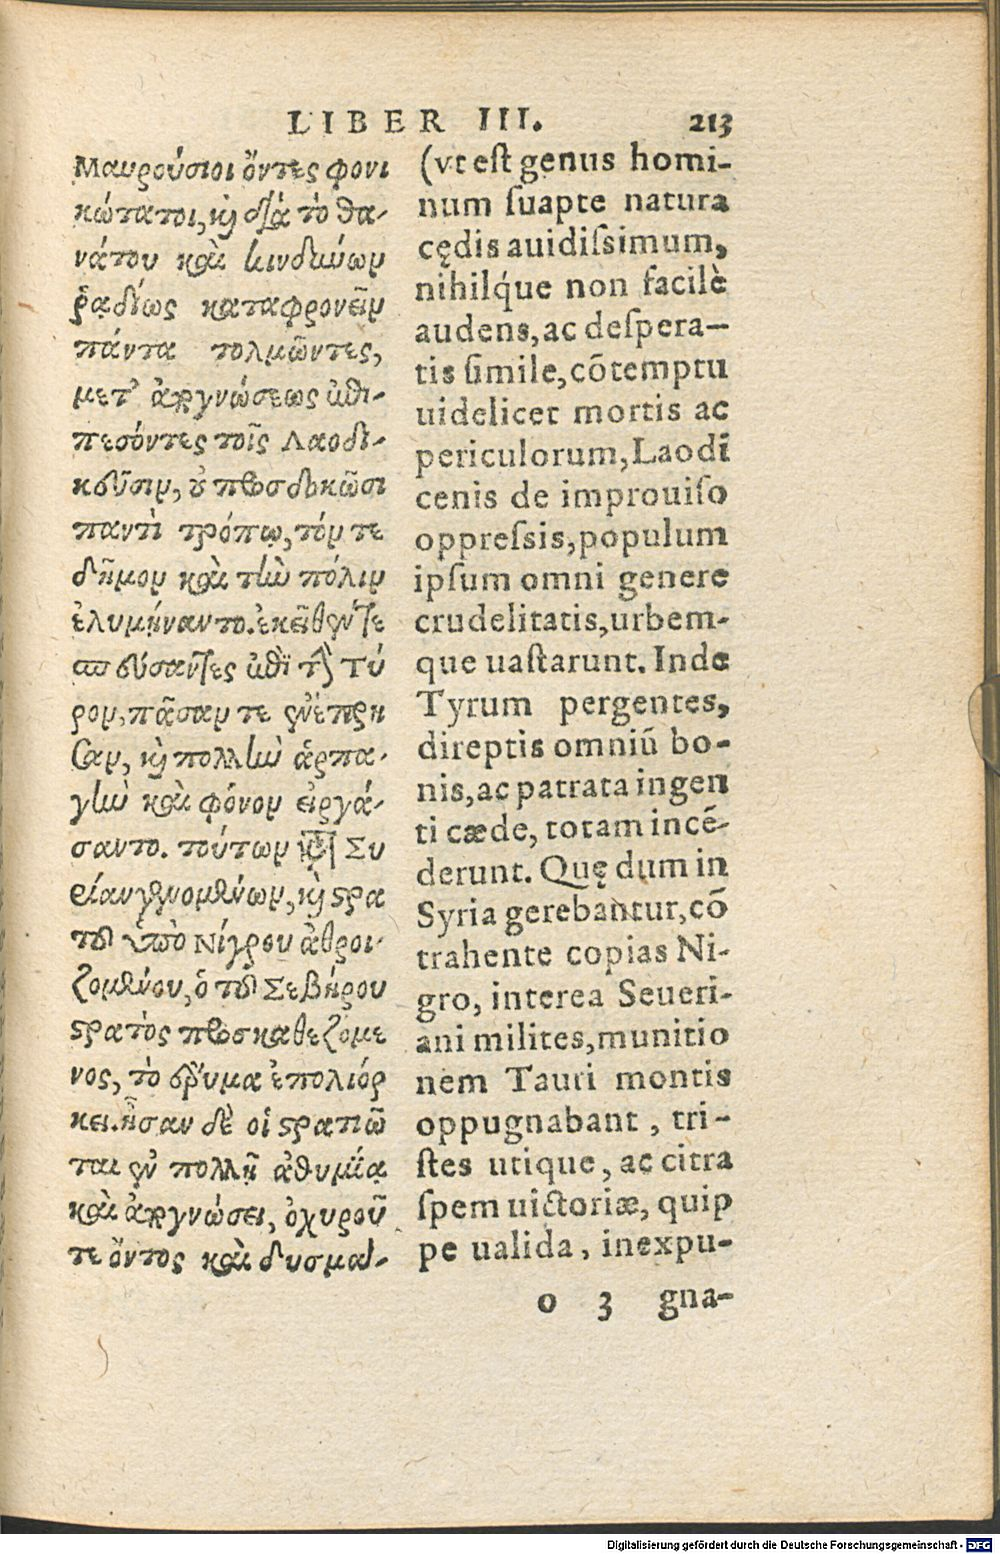 LIBER III. 213
Μαυρούσιοι ὄντες φονι
κώτατοι, καὶ διὰ τὸ θα-
νάτου καὶ κινδύνων
ῥᾳδίως καταφρονεῖν
πάντα τολμῶντες,
μετ' ἀπογνώσεως ἐπι-
πεσόντες τοῖς Λαοδι-
κεῦσιν, οὐ προσδοκῶσι
παντὶ τρόπῳ, τόν τε
δῆμον καὶ τὴν πόλιν
ἐλυμήναντο. ἐκεῖθέν τε
σπεύσαντες ἐπὶ τὴν Τύ
ρον, πᾶσάν τε ἐνέπρη
σαν, καὶ πολλὴν ἁρπα-
γὴν καὶ φόνον εἰργά-
σαντο. τούτων κατὰ Συ
ρίαν γενομένων, καὶ στρα
τοῦ ὑπὸ Νίγρου ἀθροι-
ζομένου, ὁ τοῦ Σεβήρου
στρατὸς προσκαθεζόμε
νος, τὸ ἔρυμα ἐπολιόρ
κει. ἦσαν δὲ οἱ στρατιῶ
ται ἐν πολλῇ ἀθυμίᾳ
καὶ ἀπογνώσει, ὀχυροῦ
τε ὄντος καὶ δυσμαχ-
(vt est genus homi-
num suapte natura
cędis auidissimum,
nihilq́ue non facilè
audens, ac despera-
tis simile, cōtemptu
uidelicet mortis ac
periculorum, Laodi
cenis de improuiso
oppressis, populum
ipsum omni genere
crudelitatis, urbem-
que uastarunt. Inde
Tyrum pergentes,
direptis omniū bo-
nis, ac patrata ingen
ti cæde, totam incē-
derunt. Quę dum in
Syria gerebantur, cō
trahente copias Ni-
gro, interea Seueri-
ani milites, munitio
nem Tauri montis
oppugnabant, tri-
stes utique, ac citra
spem uictoriæ, quip
pe ualida, inexpu-
o 3 gna-
Digitalisierung gefördert durch die Deutsche Forschungsgemeinschaft - DFG